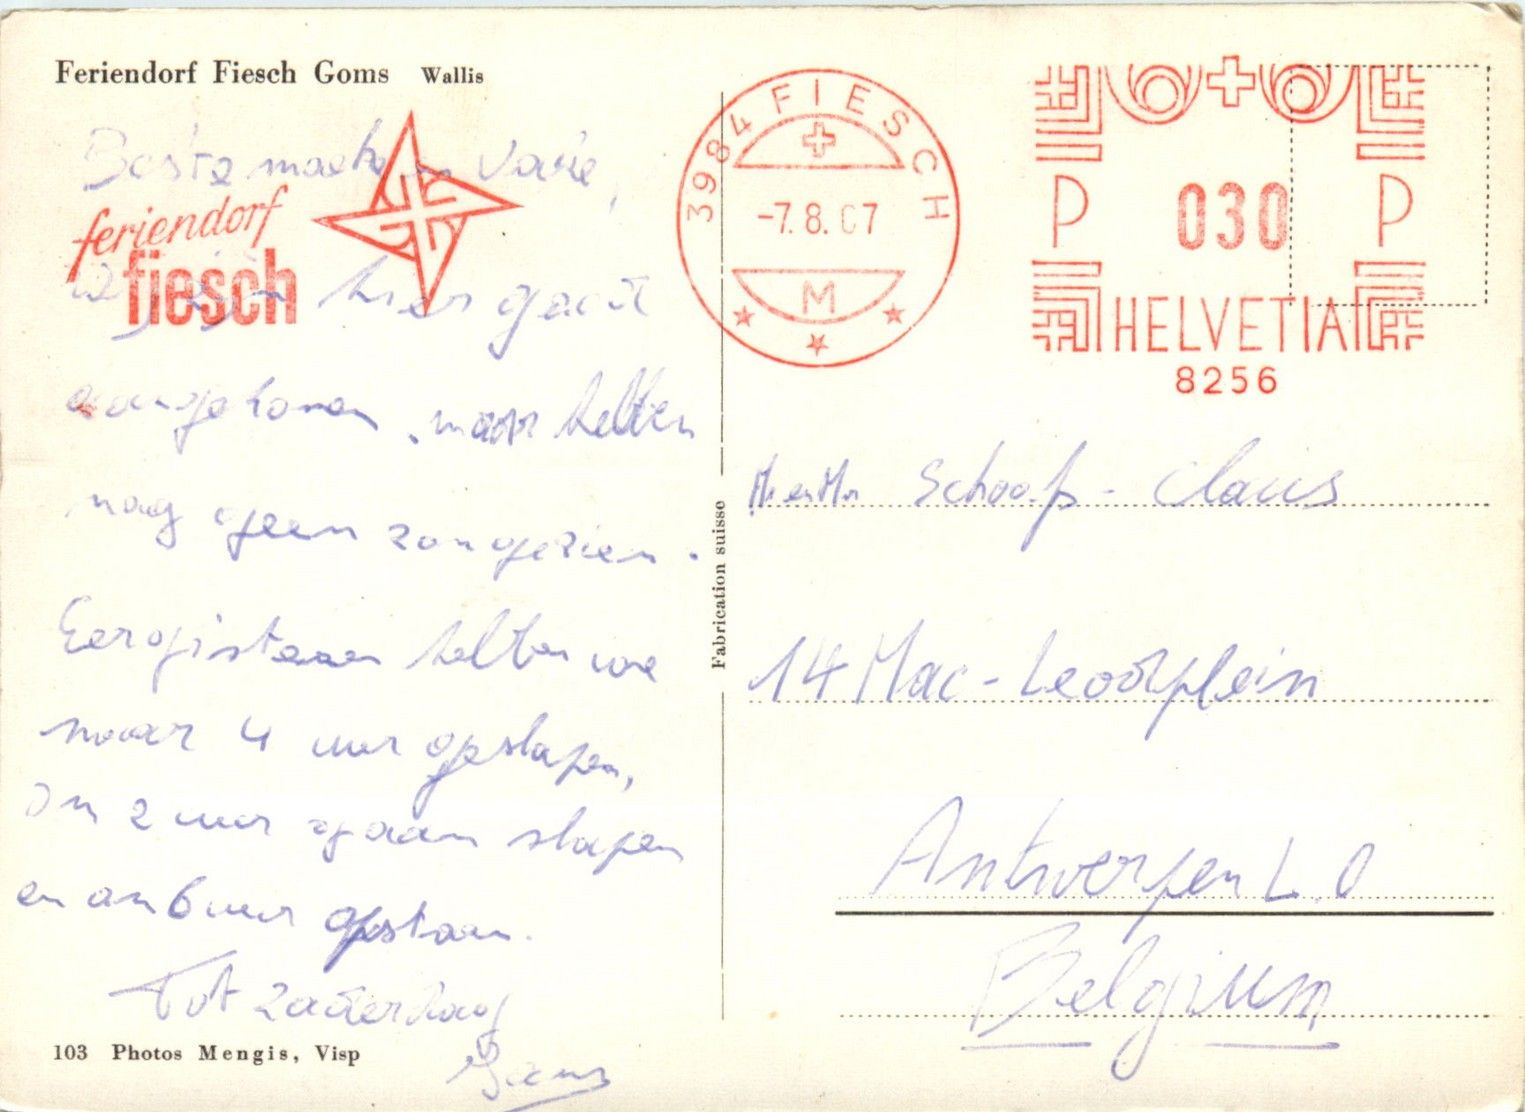 Feriendorf Fiesch Goms Wallis
Beste moeke en vake,
feriendorf
fiesch
zijn hier goed
aangekomen, maar hebben
nog geen zon gezien.
Eergisteren hebben we
maar 4 uur geslapen,
Om 2 uur gaan slapen
en om 6 uur opstaan.
Tot zaterdag
103 Photos Mengis, Visp
Fabrication suisse
3984 FIESCH
-7.8.67
M
P 030 P
HELVETIA
8256
Schoofs - Claus
14 Mac-Leodplein
Antwerpen L.O
Belgium